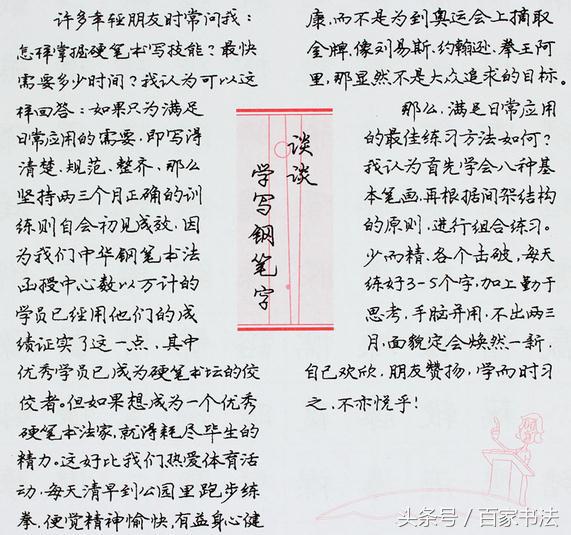 许多年轻朋友时常问我：
怎样掌握硬笔书写技能？最快
需要多少时间？我认为可以这
样回答：如果只为满足
日常应用的需要，即写得
清楚、规范、整齐，那么
坚持两三个月正确的训
练则自会初见成效，因
为我们中华钢笔书法
函授中心数以万计的
学员已经用他们的成
绩证实了这一点，其中
优秀学员已成为硬笔书坛的佼
佼者。但如果想成为一个优秀
硬笔书法家，就得耗尽毕生的
精力。这好比我们热爱体育活
动，每天清早到公园里跑步练
拳，便觉精神愉快，有益身心健
谈谈
学写钢笔字
康，而不是为到奥运会上摘取
金牌，像刘易斯、约翰逊、拳王阿
里，那显然不是大众追求的目标。
那么，满足日常应用
的最佳练习方法如何？
我认为首先学会八种基
本笔画，再根据间架结构
的原则，进行组合练习。
少而精、各个击破，每天
练好3-5个字，加上勤于
思考，手脑并用，不出两三
月，面貌定会焕然一新，
自己欢欣，朋友赞扬，学而时习
之，不亦悦乎！
头条号／百家书法